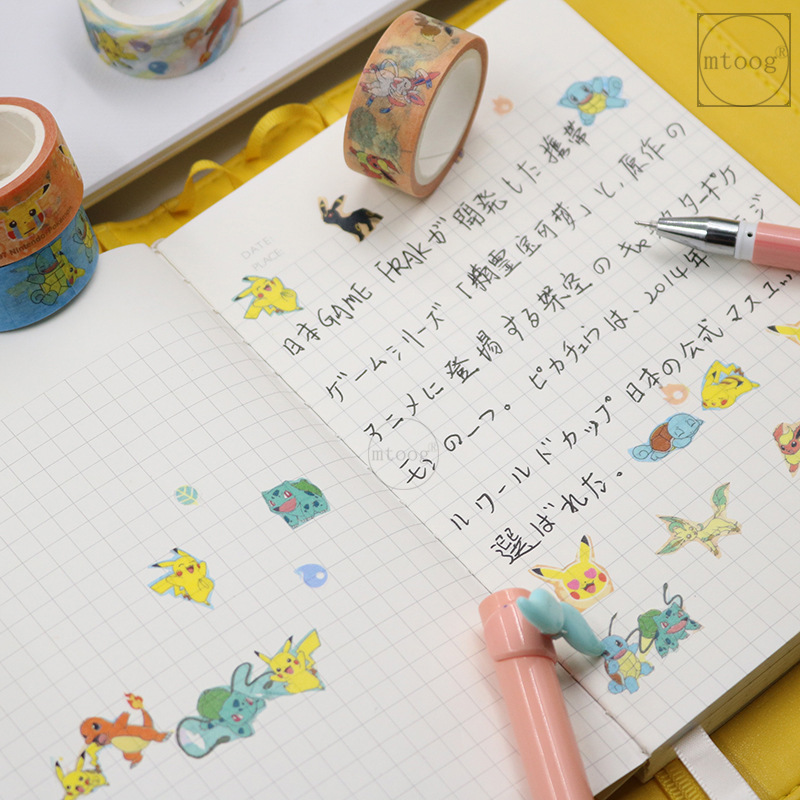 mtoog®
DATE:
PLACE:
日本GAME「RAKが開発した携帯
ゲームシリーズ「精霊宝可梦」と、原作の
アニメに登場する架空のキャラクターポケ
モンの一つ。ピカチュウは、2014年 ージ
ルワールドカップ日本の公式マスコッ
選ばれた。
mtoog®
Nintendo